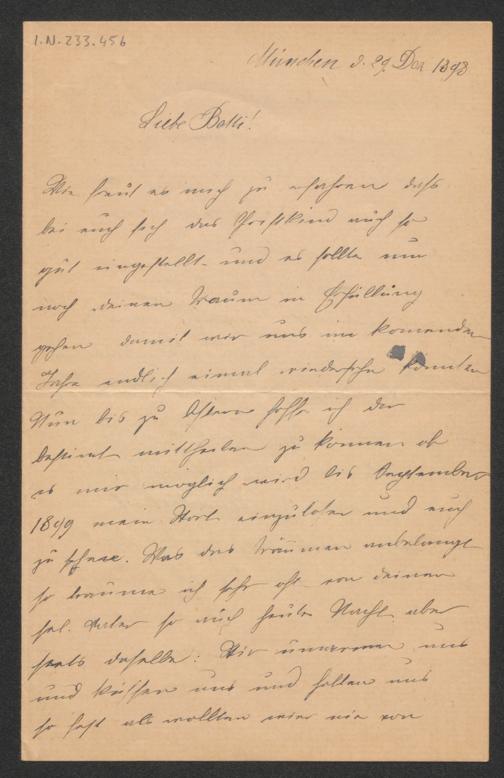 I.N. 233.456
München d. 29 Dez 1898
Liebe Betti!
Wie freut es mich zu erfahren daß
bei euch sich das Christkind auch so
gut eingestellt und es sollte nun
noch deinen Traum in Erfüllung
gehen damit wir uns im kommenden
Jahr endlich einmal wiedersehen könnten
Nun bis zu Ostern hoffe ich dir
bestimt mittheilen zu können ob
es mir möglich wird bis September
1899 mein Wort einzulösen und euch
zu sehen. Was das träumen anbelangt
so träume ich sehr oft von deinem
sel. Vater so auch heute Nacht aber
stets dasselbe: Wir umarmen uns
und küssen uns und halten uns
so fest als wollten wir nie von